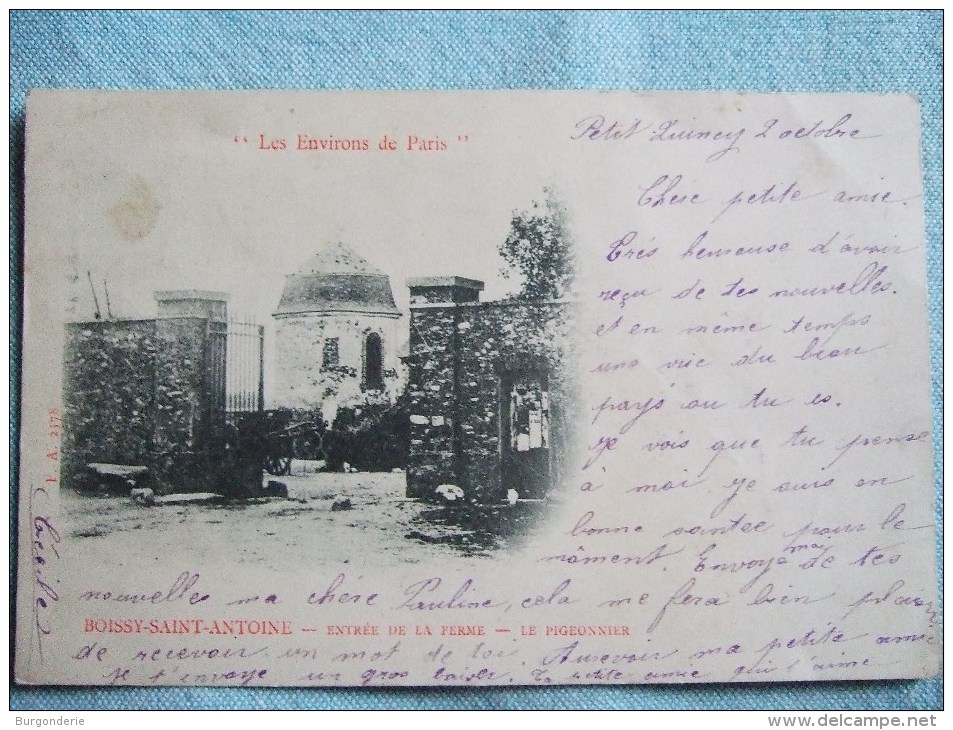 “ Les Environs de Paris ”
Petit Quincy 2 octobre
Chère petite amie.
Très heureuse d'avoir
reçu de tes nouvelles.
et en même temps
une vue du beau
pays ou tu es.
Je vois que tu pense
à moi. Je suis en
bonne santée pour le
môment. Envoye moi de tes
nouvelles ma chére Pauline, cela me fera bien plaisir
de recevoir un mot de toi. Aurevoir ma petite amie
je t'envoye un gros baiser. Ta petite amie qui t'aime
Cécile
F. A. 2378
BOISSY-SAINT-ANTOINE — ENTRÉE DE LA FERME — LE PIGEONNIER
Burgonderie
www.delcampe.net